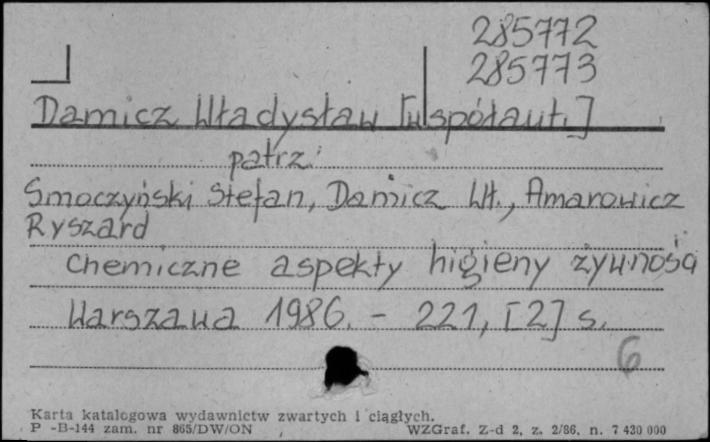 285772
285773
Damicz Władysław [współaut.]
patrz:
Smoczyński Stefan, Damicz Wł., Amarowicz
Ryszard
Chemiczne aspekty higieny żywności
Warszawa 1986. - 221, [2] s.
6
Karta katalogowa wydawnictw zwartych i ciągłych.
P -B-144 zam. nr 865/DW/ON WZGraf. Z-d 2, z. 2/86. n. 7 430 000